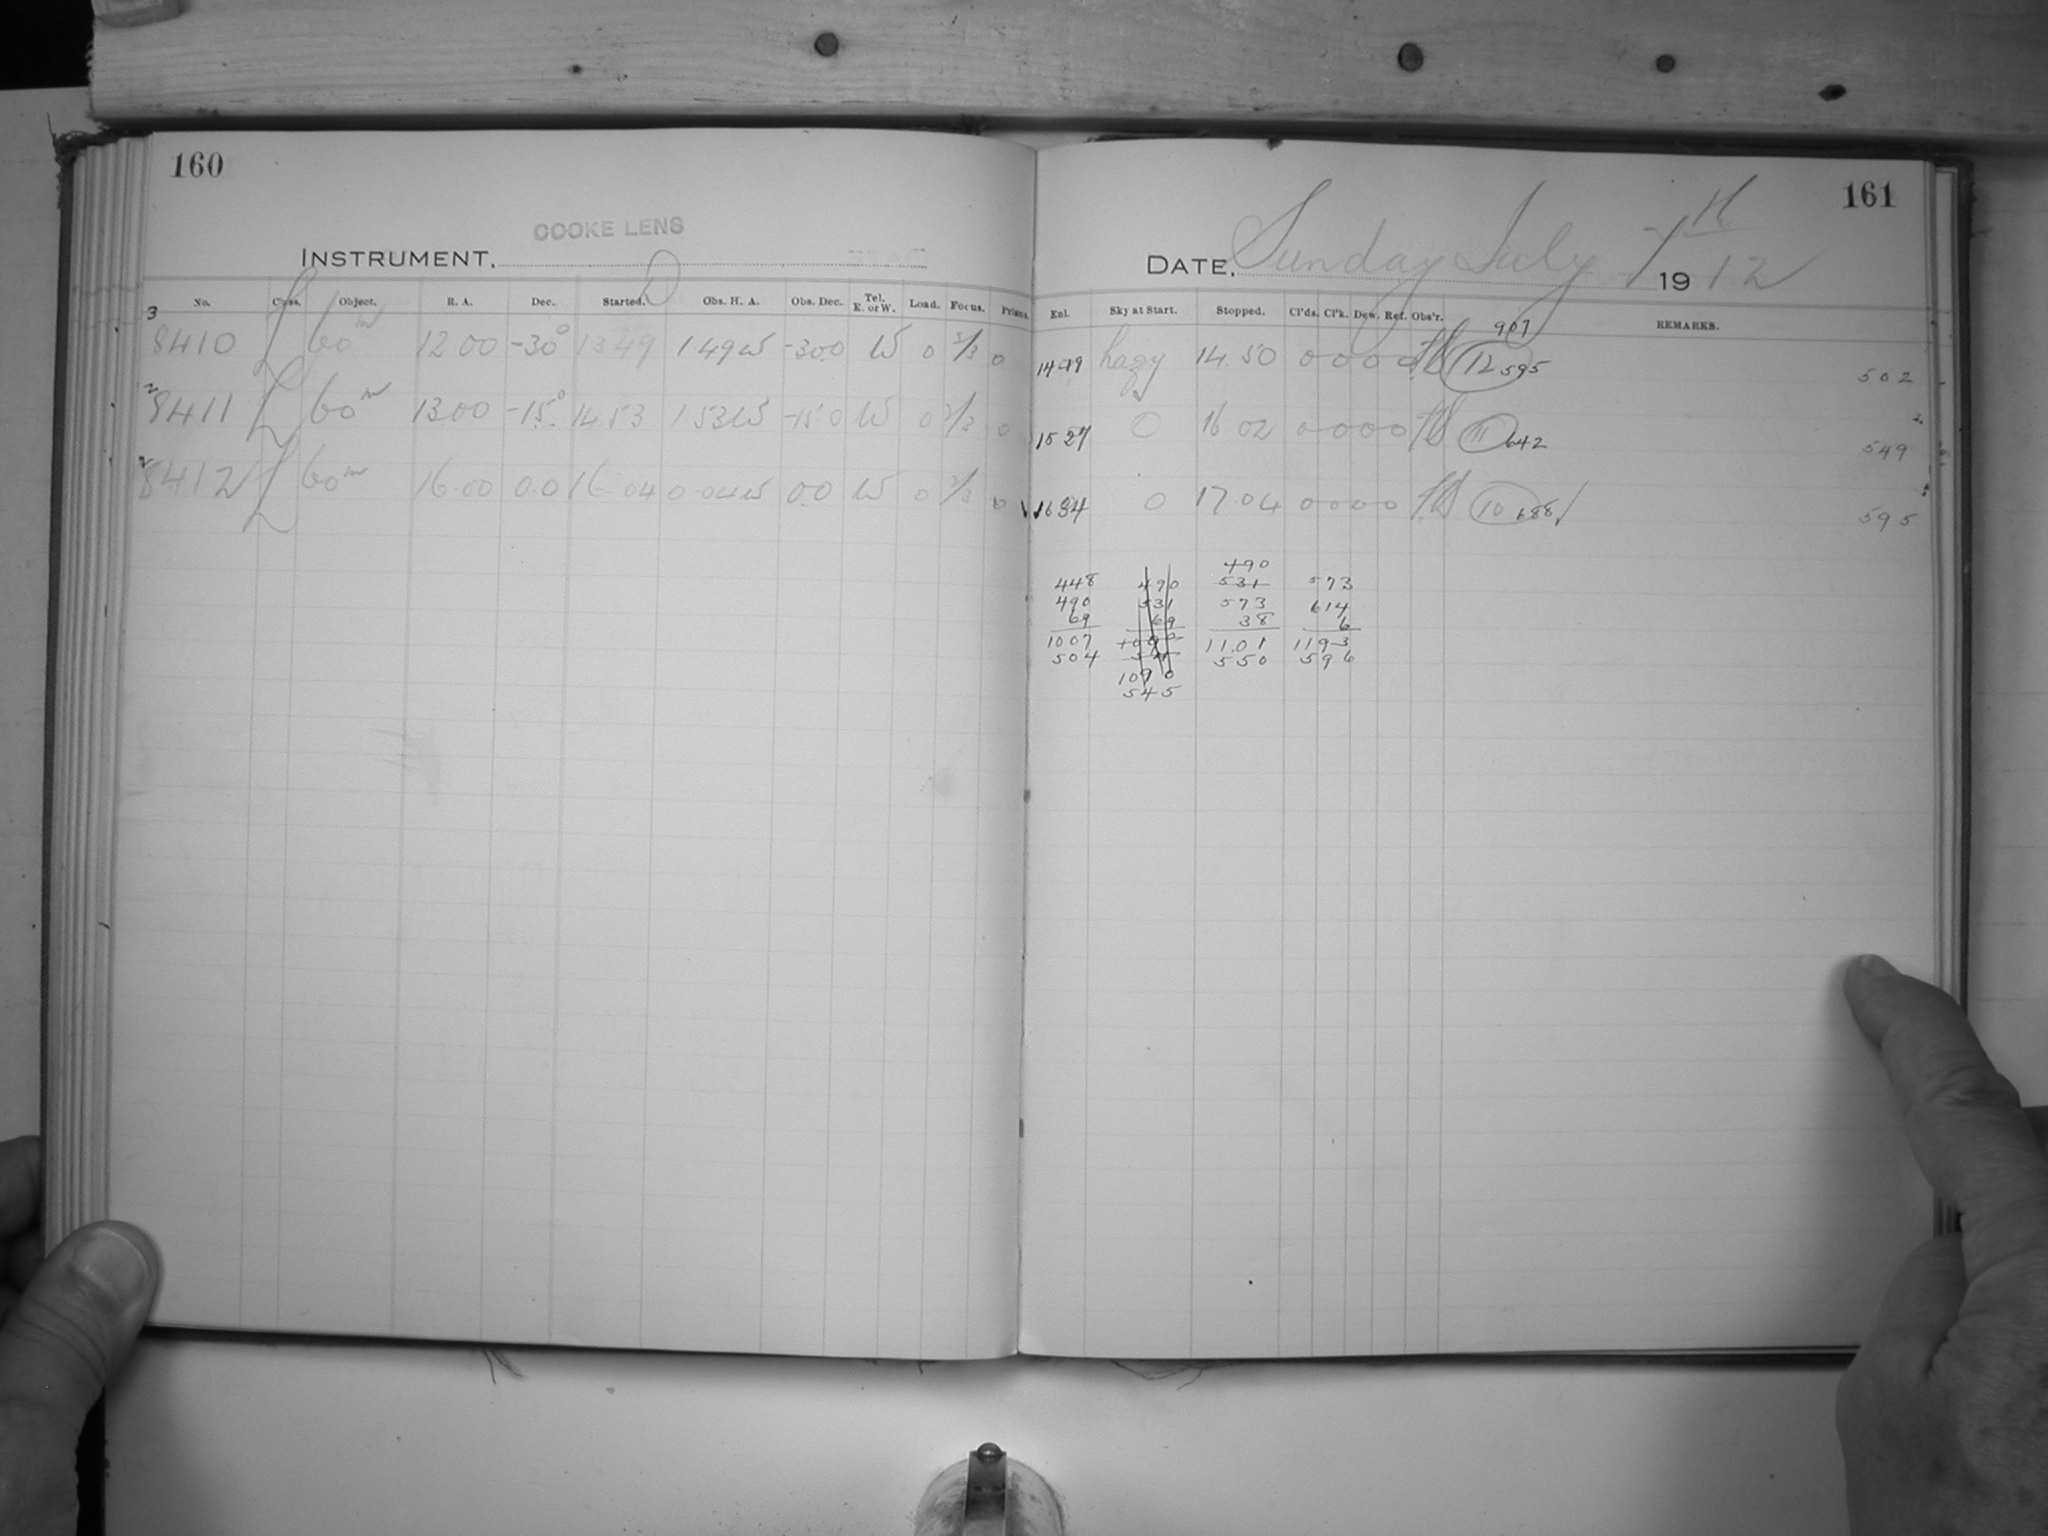 160
COOKE LENS
INSTRUMENT.
No. Class. Object. R. A. Dec. Started. Obs. H. A. Obs. Dec. Tel. E. or W. Load. Focus. Prisms.
3
8410 L 60m 12 00 -30° 13 49 1.49W -30.0 W 0 0
2
8411 L 60m 13.00 -15.° 14.53 1.53W -15.0 W 0 0
8412 L 60m 16.00 0.0 16.04 0.04W 0.0 W 0 0
161
DATE, Sunday July 7th 1912
Enl. Sky at Start. Stopped. Cl'ds. Cl'k. Dew. Ref. Obs'r. REMARKS.
907
hazy 14.50 0 0 0 0 12 595 502
15 27 0 16.02 0 0 0 0 11 642 549
16 34 0 17.04 0 0 0 0 10 688 595
490
448 490 531 573
490 531 573 614
69 69 38 6
1007 1101 1193
504 550 596
1090
545